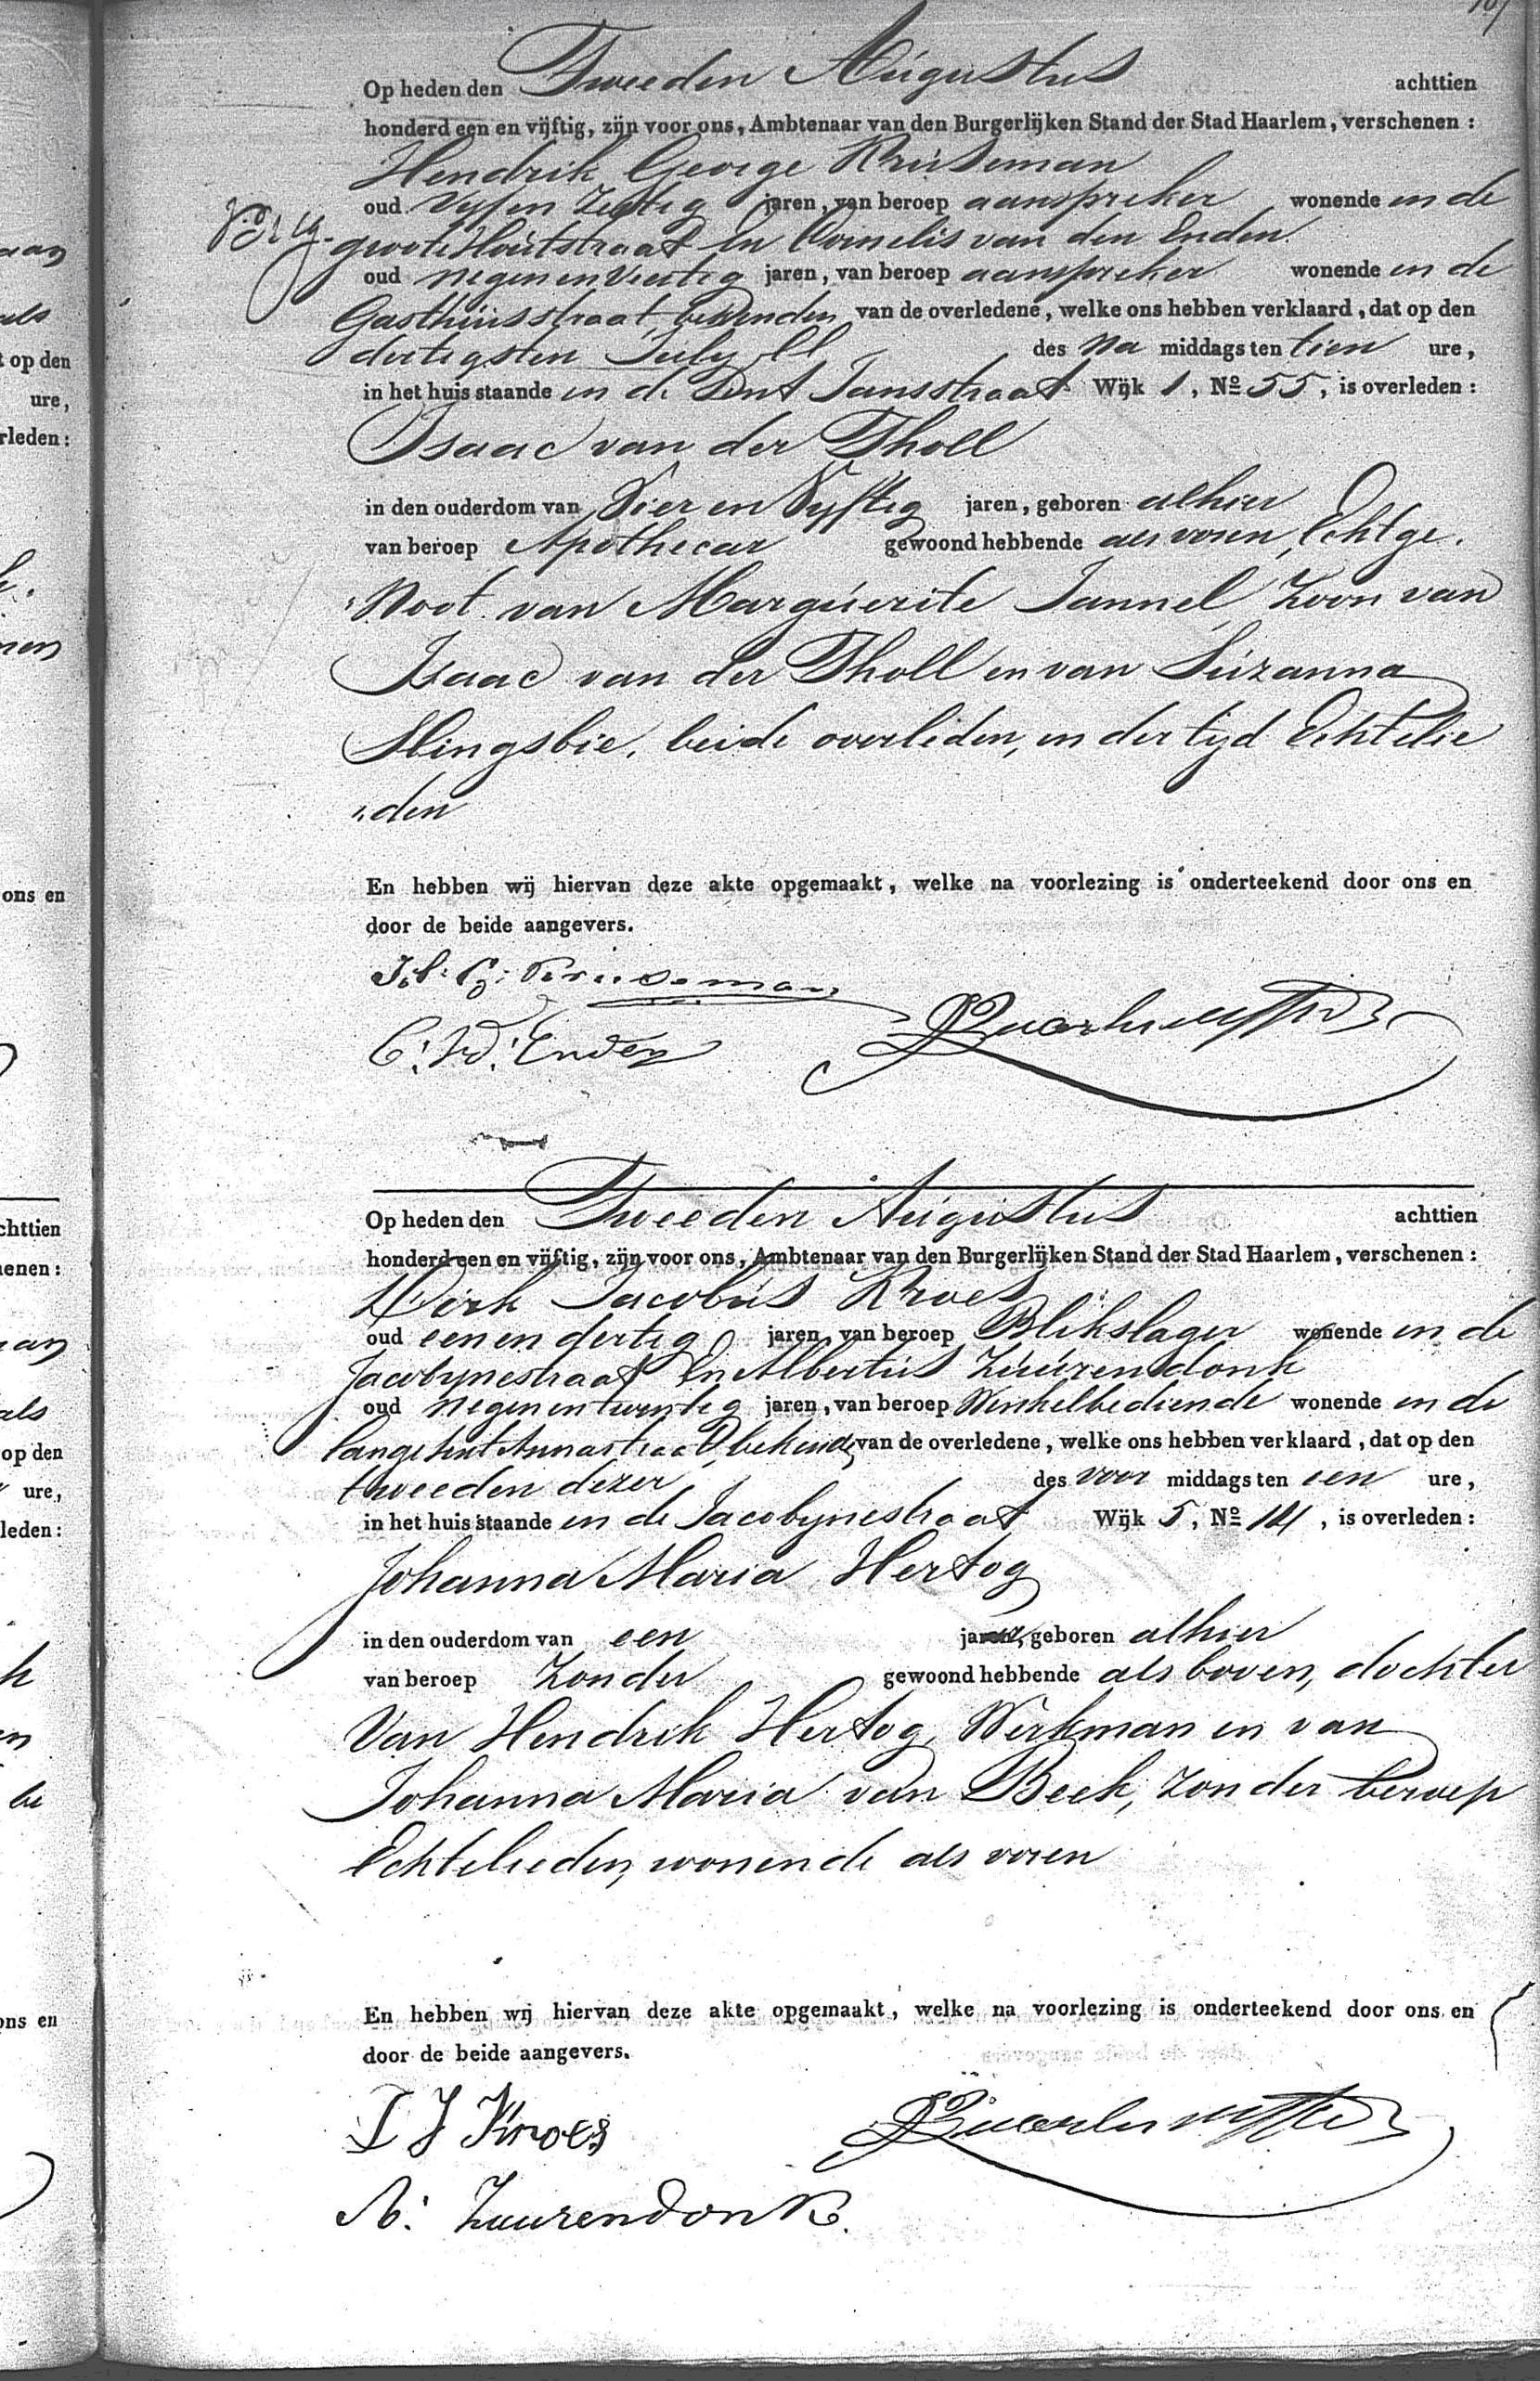 Op heden den Tweeden Augustus achttien
honderd een en vijftig, zijn voor ons, Ambtenaar van den Burgerlijken Stand der Stad Haarlem, verschenen :
Hendrik George Kruseman
oud Vyf en Zestig jaren, van beroep aanspreker wonende in de
groote Houtstraat En Cornelis van den Enden
oud negen en Veertig jaren, van beroep aanspreker wonende in de
Gasthuisstraat, bekenden van de overledene, welke ons hebben verklaard, dat op den
dertigsten July ll des na middags ten tien ure,
in het huis staande in de Sint Jansstraat Wijk 1, No 55, is overleden :
Isaac van der Tholl
in den ouderdom van Vier en Vyftig jaren, geboren alhier
van beroep Apothecar gewoond hebbende als voren, Echtge.
noot van Marguerite Jannel, Zoon van
Isaac van der Tholl en van Suzanna
Slingsbie, beide overleden, in der tyd Echtelie
„den
En hebben wij hiervan deze akte opgemaakt, welke na voorlezing is onderteekend door ons en
door de beide aangevers.
H: G: Kruseman
C: v d: Enden
Op heden den Tweeden Augustus achttien
honderd een en vijftig, zijn voor ons, Ambtenaar van den Burgerlijken Stand der Stad Haarlem, verschenen :
Dirk Jacobus Kroes
oud een en dertig jaren, van beroep Blikslager wonende in de
Jacobynestraat En Albertus Zuurendonk
oud negen en twintig jaren, van beroep Winkelbediende wonende in de
lange Sint Annastraat, bekende van de overledene, welke ons hebben verklaard, dat op den
tweeden dezer des voor middags ten een ure,
in het huis staande in de Jacobynestraat Wijk 5, No 14, is overleden :
Johanna Maria Hertog
in den ouderdom van een jaar, geboren alhier
van beroep Zonder gewoond hebbende als boven, dochter
Van Hendrik Hertog, Werkman en van
Johanna Maria van Beek, Zonder beroep
Echtelieden, wonende als voren
En hebben wij hiervan deze akte opgemaakt, welke na voorlezing is onderteekend door ons en
door de beide aangevers.
D J Kroes
A: Zuurendonk